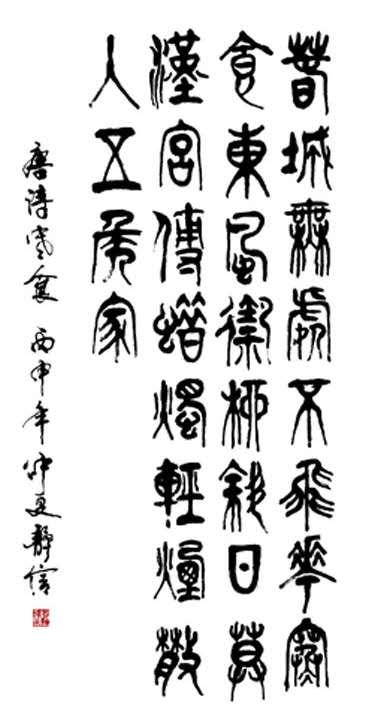 春城無處不飛華寒
食東風御柳斜日莫
漢宮傳蜡燭輕煙散
人五侯家
唐詩寒食 丙申年仲夏靜信